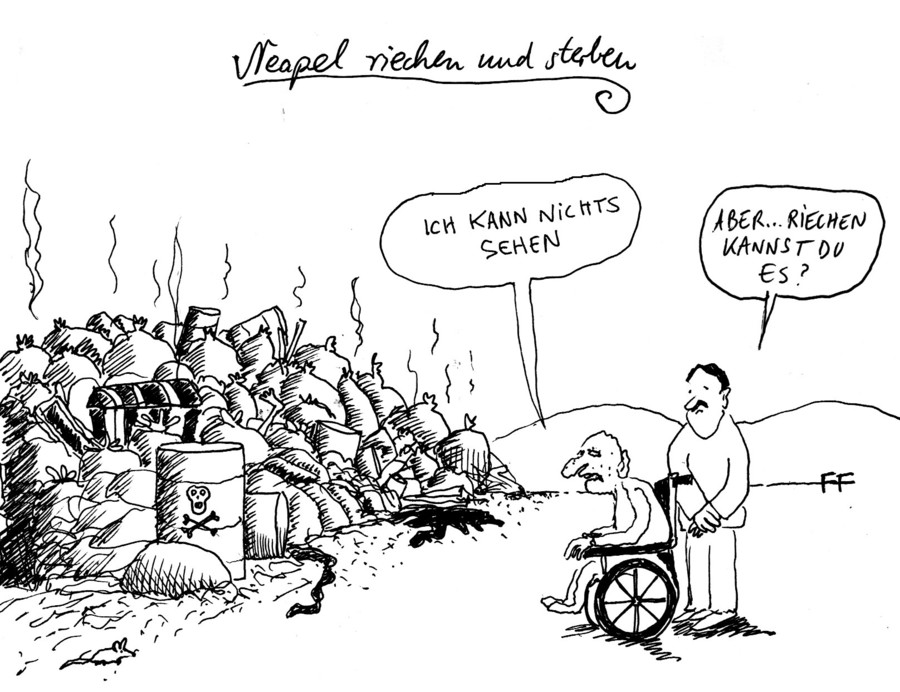 Neapel riechen und sterben
ICH KANN NICHTS
SEHEN
ABER...RIECHEN
KANNST DU
ES?
FF